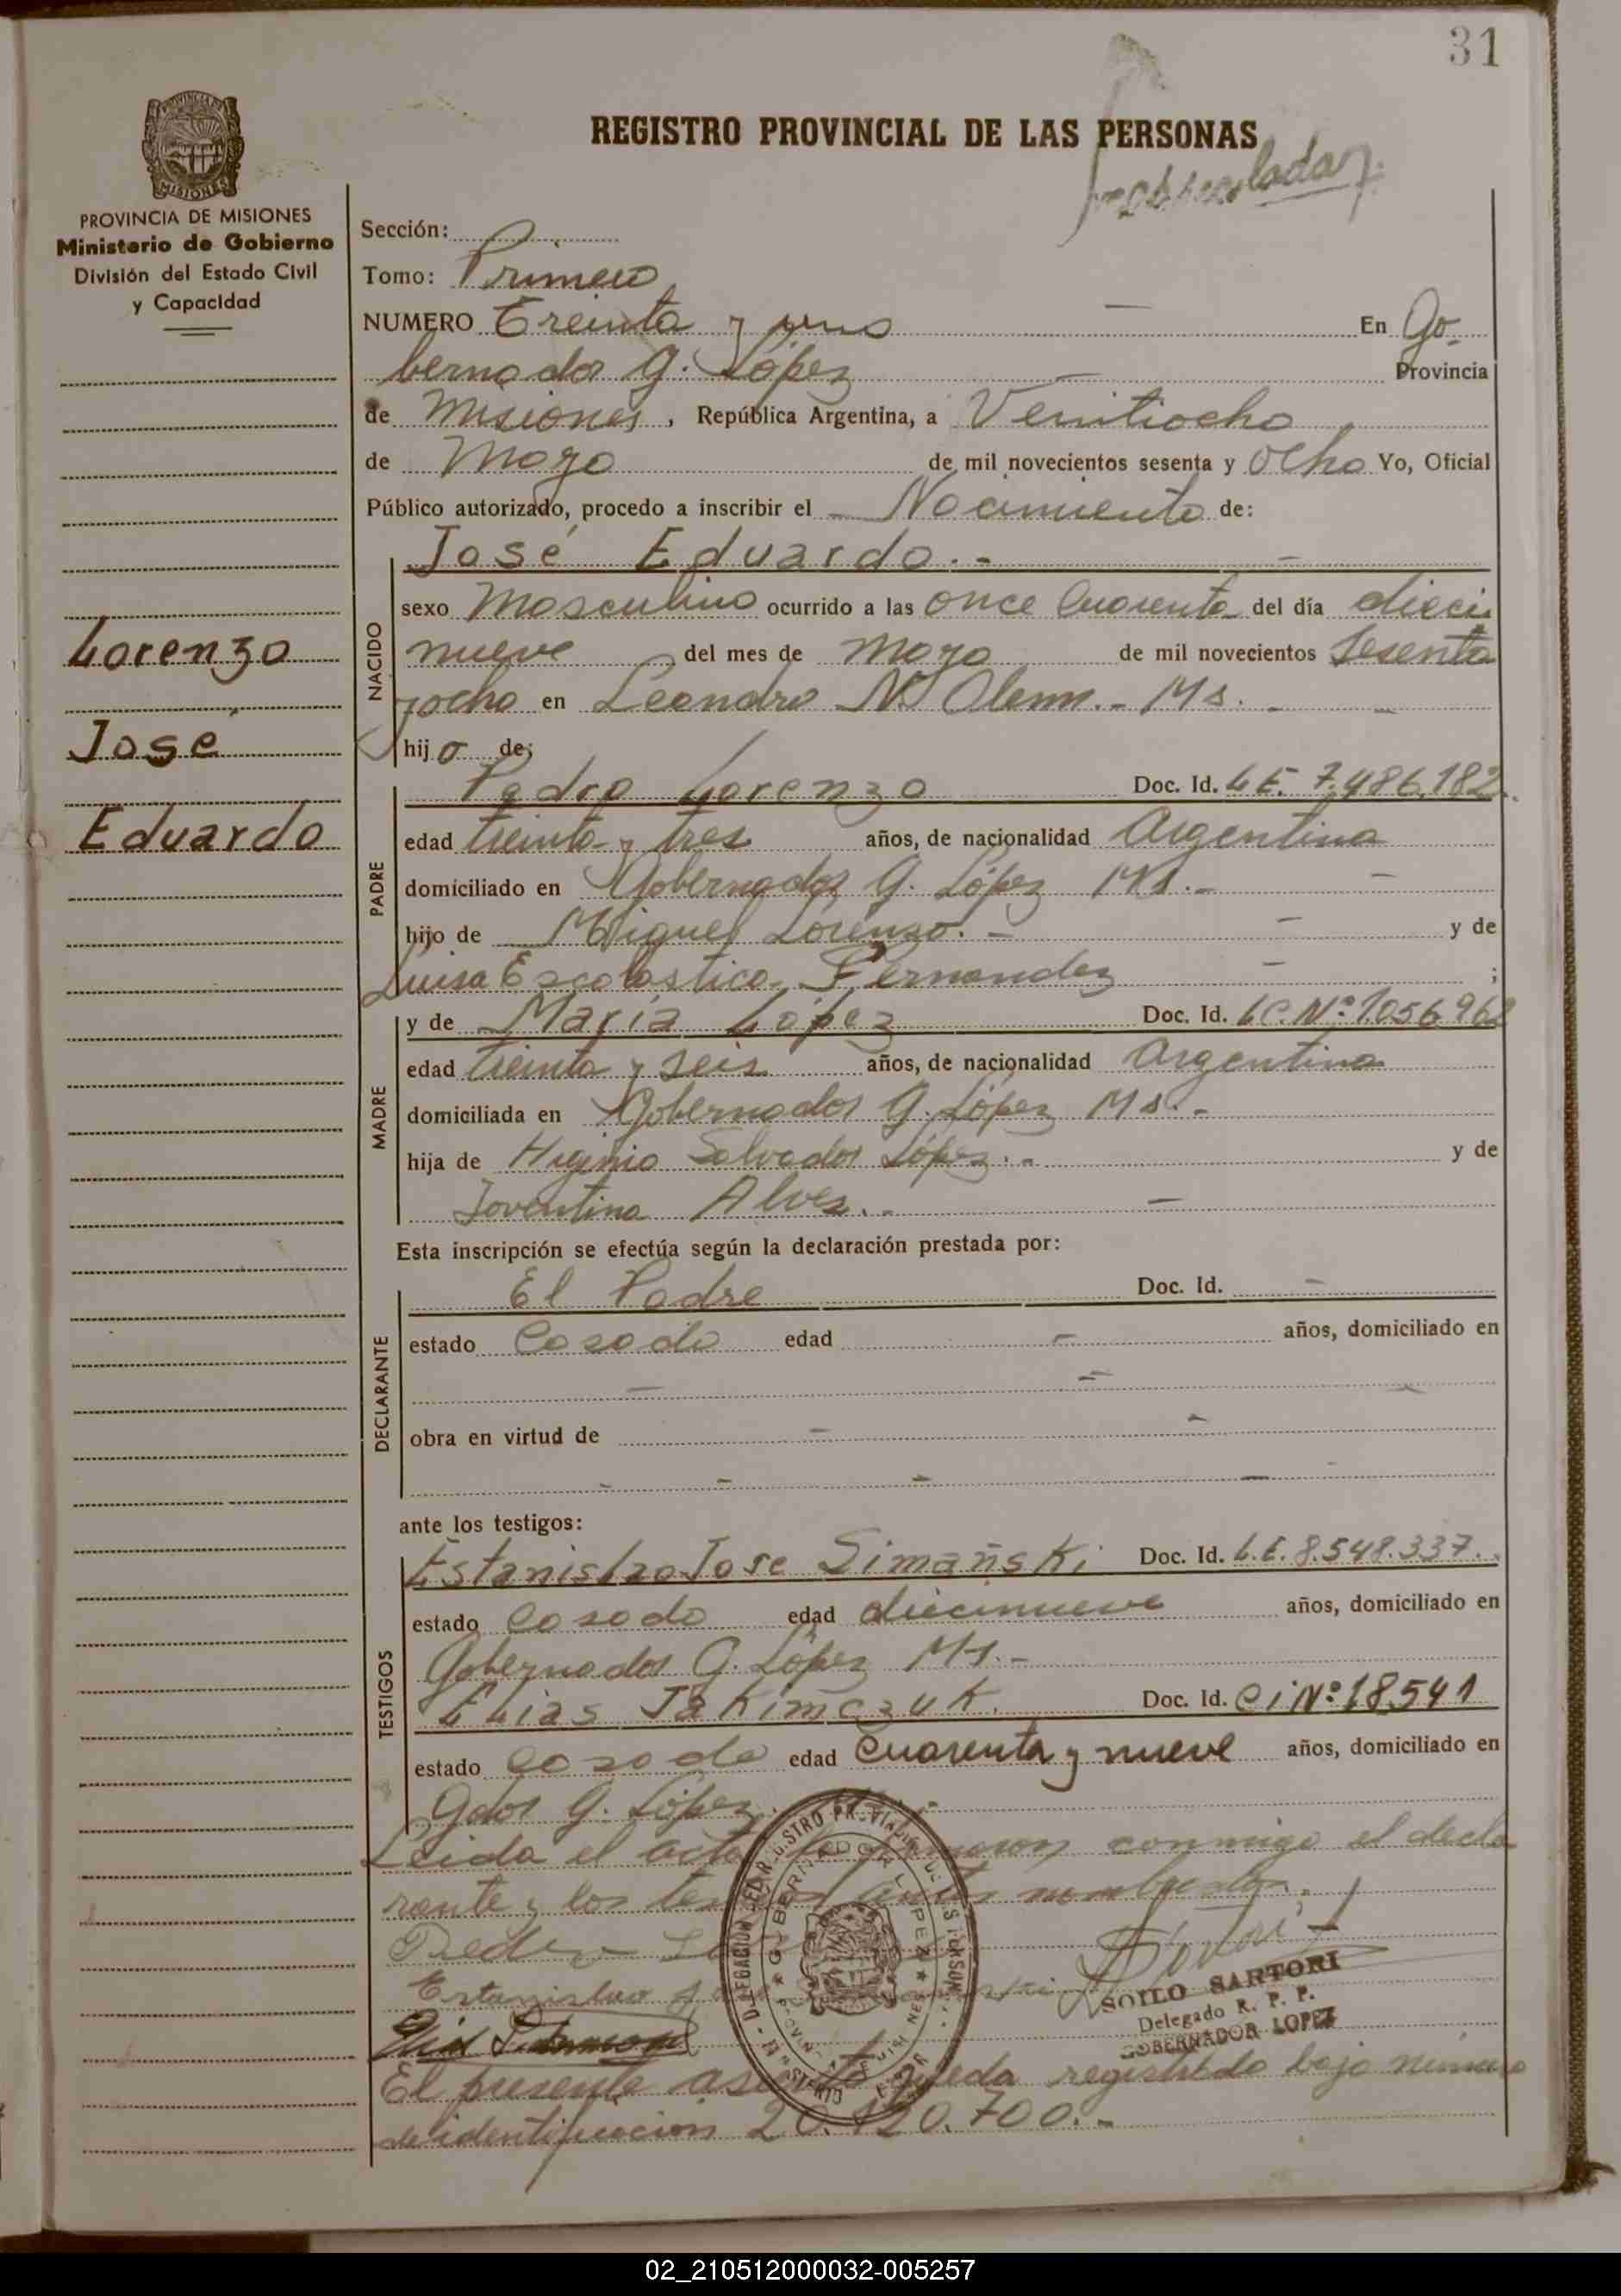 31
REGISTRO PROVINCIAL DE LAS PERSONAS
PROVINCIA DE MISIONES
Ministerio de Gobierno
División del Estado Civil
y Capacidad
Sección:
Tomo: Primero
NUMERO Treinta y uno En Go-
bernador G. López Provincia
de Misiones, República Argentina, a Veintiocho
de Mayo de mil novecientos sesenta y ocho Yo, Oficial
Público autorizado, procedo a inscribir el Nacimiento de:
José Eduardo.-
NACIDO
sexo Masculino ocurrido a las once Cuarenta del día dieci
nueve del mes de Mayo de mil novecientos Sesenta
y ocho en Leandro N. Alem.- Ms.
Lorenzo
José
Eduardo
hijo de;
PADRE
Pedro Lorenzo Doc. Id. L.E. 7.486.182.
edad treinta y tres años, de nacionalidad Argentina
domiciliado en Gobernador G. López Ms.-
hijo de Miguel Lorenzo.- y de
Luisa Escolastica Fernandez ;
MADRE
y de María López Doc. Id. L.C. Nº 1.056.968
edad treinta y seis años, de nacionalidad Argentina
domiciliada en Gobernador G. López Ms.-
hija de Higinio Salvador López.- y de
Joventina Alves.-
Esta inscripción se efectúa según la declaración prestada por:
DECLARANTE
El Padre Doc. Id. -
estado Casado edad - años, domiciliado en
obra en virtud de
ante los testigos:
TESTIGOS
Estanislao Jose Simañski Doc. Id. L.E. 8.548.337.
estado Casado edad diecinueve años, domiciliado en
Gobernador G. López Ms.-
Elias Jakimczuk. Doc. Id. Ci Nº 18541
estado Casado edad Cuarenta y nueve años, domiciliado en
Gdor G. López
Leida el acta la firmaron conmigo el decla
rante y los
Pedro
Estanislao
SOILO SARTORI
Delegado R. P. P.
GOBERNADOR LOPEZ
El presente asiento queda registrado bajo número
de identificación 20.120.700.-
02_210512000032-005257